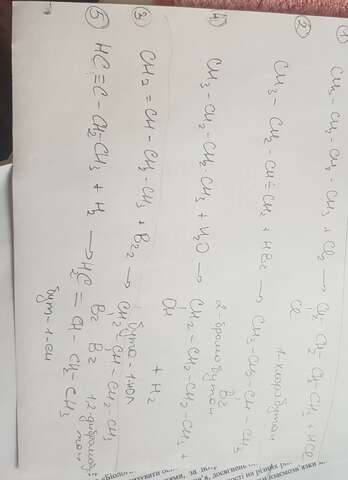 ① CH3-CH2-CH2-CH3 + Cl2 → CH2-CH2-CH2-CH3 + HCl
Cl 1-хлоробутан
② CH3-CH2-CH=CH2 + HBr → CH3-CH2-CH-CH3
Br
2-бромобутан
④ CH3-CH2-CH2-CH3 + H2O → CH2-CH2-CH2-CH3 +
OH + H2
бутан-1-ол
③ CH2=CH-CH2-CH3 + Br2 → CH2-CH-CH2-CH3
Br Br 1,2-дибромобутан
⑤ HC≡C-CH2-CH3 + H2 → H2C=CH-CH2-CH3
бут-1-ен